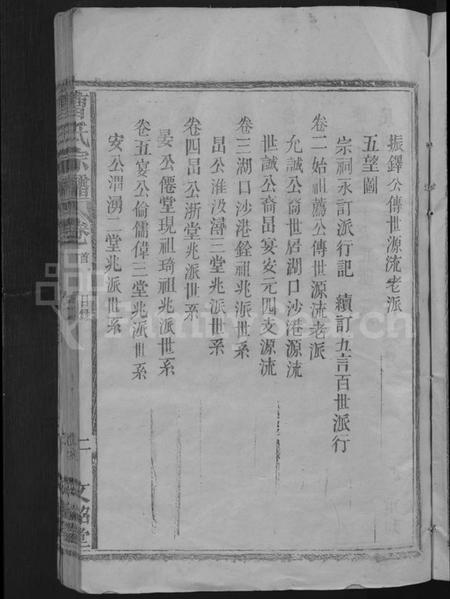 振鐸公傳世源流老派
五望圖
宗祠永訂派行記 續訂九言百世派行
卷二始祖薦公傳世源流老派
允誠公裔世居湖口沙港源流
世誠公裔昷宴安元四支源流
卷三湖口沙港銓祖兆派世系
昷公淮汲潯三堂兆派世系
卷四昷公浙堂兆派世系
晏公僊堂現祖琦祖兆派世系
卷五宴公倫儒偉三堂兆派世系
安公渭湧二堂兆派世系
曹氏宗譜 卷首 目錄
二 文銘堂